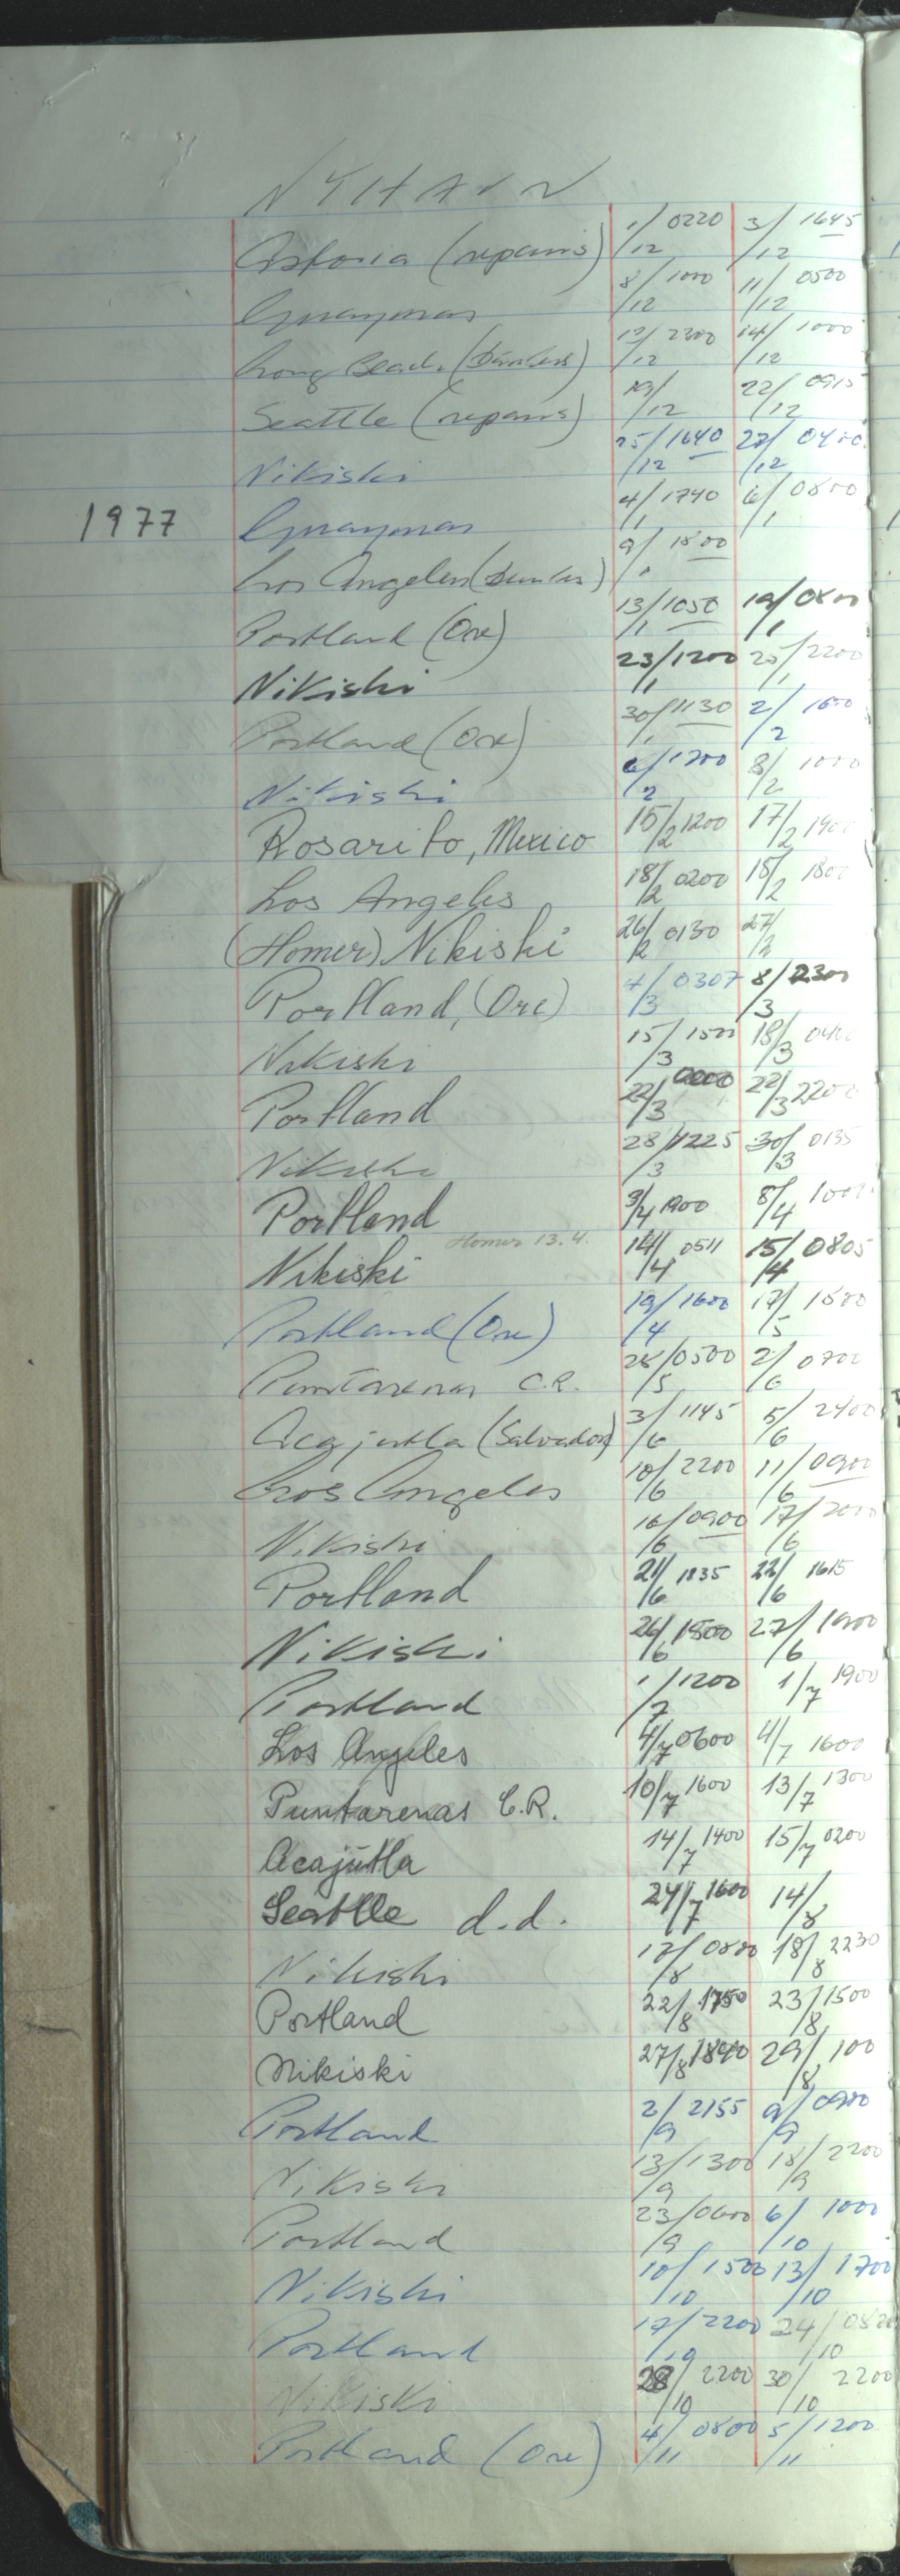 NYHAVN
Astoria (repairs) 1/12 0220 3/12 1645
Guaymas 8/12 1000 11/12 0500
Long Beach (bunkers) 13/12 2300 14/12 1000
Seattle (repairs) 19/12 22/12 0915
Nikiski 25/12 1640 27/12 0400
1977 Guaymas 4/1 1740 6/1 0800
Los Angeles (bunkers) 9/1 1800
Portland (Ore) 13/1 1050 19/1 0800
Nikiski 23/1 1200 25/1 2200
Portland (Ore) 30/1 1130 2/2 1600
Nikiski 6/2 1200 8/2 1000
Rosarito, Mexico 15/2 1200 17/2 1900
Los Angeles 18/2 0200 18/2 1800
(Homer) Nikiski 26/2 0130 27/2
Portland, (Ore) 4/3 0307 8/3 2300
Nikiski 15/3 1500 18/3 0400
Portland 22/3 0200 22/3 2200
Nikiski 28/3 1225 30/3 0135
Portland 3/4 1900 8/4 1000
Homer 13.4.
Nikiski 14/4 0511 15/4 0805
Portland (Ore) 19/4 1600 17/5 1800
Puntarenas C.R. 28/5 0500 2/6 0700
Acajutla (Salvador) 3/6 1145 5/6 2400
Los Angeles 10/6 2200 11/6 0900
Nikiski 16/6 0900 17/6 2000
Portland 21/6 1835 22/6 1615
Nikiski 26/6 1500 27/6 1900
Portland 1/7 1200 1/7 1900
Los Angeles 4/7 0600 4/7 1600
Puntarenas C.R. 10/7 1600 13/7 1300
Acajútla 14/7 1400 15/7 0200
Seattle d.d. 24/7 1600 14/8
Nikiski 17/8 0800 18/8 2230
Portland 22/8 1750 23/8 1500
Nikiski 27/8 1840 29/8 100
Portland 2/9 2155 9/9 0900
Nikiski 13/9 1300 18/9 2200
Portland 23/9 0600 6/10 1000
Nikiski 10/10 1500 13/10 1700
Portland 17/10 2200 24/10
Nikiski 28/10 2200 30/10 2200
Portland (Ore) 4/11 0800 5/11 1200